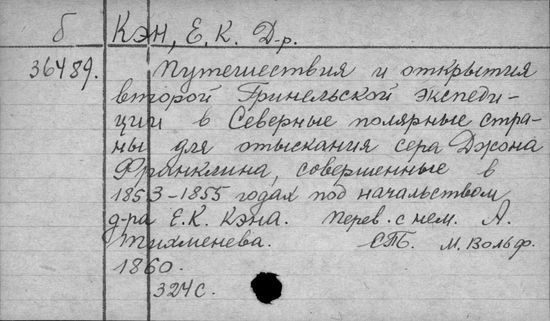 б Кэн, Е. К. Д-р.
36489. Путешествия и открытия
второй Гринельской экспеди-
ции в Северные полярные стра-
ны для отыскания сера Джона
Франклина, совершенные в
1853-1855 годах под начальством
д-ра Е.К. Кэна. Перев. с нем. А.
Тихменева. СПБ. М. Вольф.
1860.
324с.